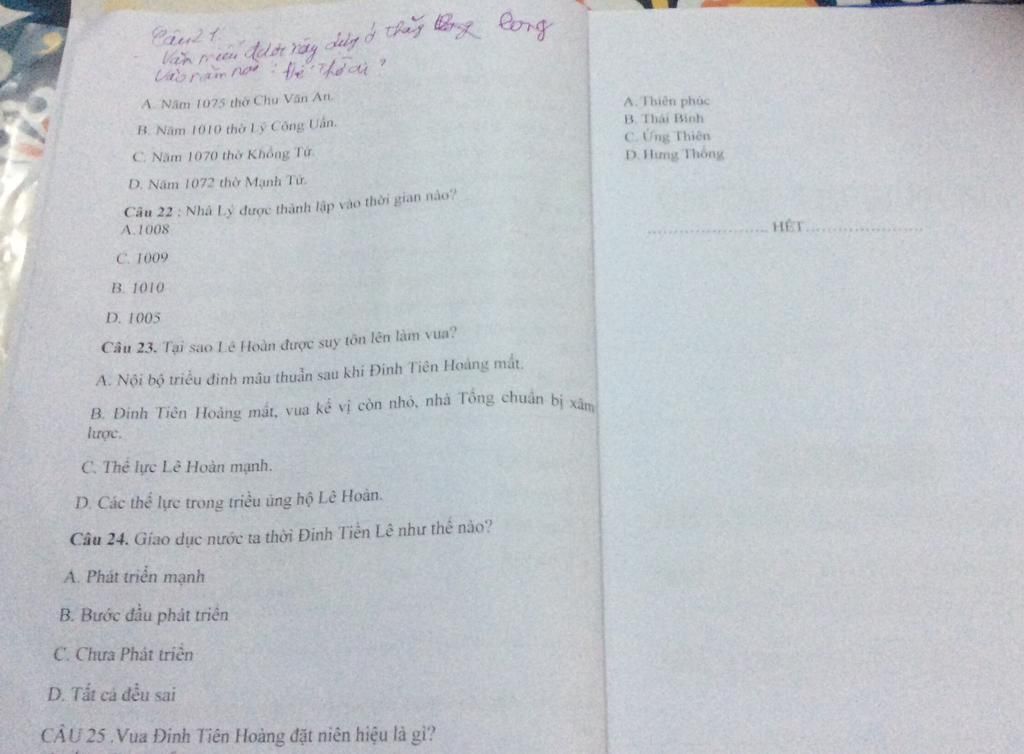 Câu 21.
Văn miếu được xây dựng ở thăng Long
vào năm nào? Để thờ ai?
A. Năm 1075 thờ Chu Văn An.
B. Năm 1010 thờ Lý Công Uẩn.
C. Năm 1070 thờ Khổng Tử.
D. Năm 1072 thờ Mạnh Tử.
Câu 22 : Nhà Lý được thành lập vào thời gian nào?
A.1008
C. 1009
B. 1010
D. 1005
Câu 23. Tại sao Lê Hoàn được suy tôn lên làm vua?
A. Nội bộ triều đình mâu thuẫn sau khi Đinh Tiên Hoàng mất.
B. Đinh Tiên Hoàng mất, vua kế vị còn nhỏ, nhà Tống chuẩn bị xâm
lược.
C. Thế lực Lê Hoàn mạnh.
D. Các thế lực trong triều ủng hộ Lê Hoàn.
Câu 24. Giáo dục nước ta thời Đinh Tiền Lê như thế nào?
A. Phát triển mạnh
B. Bước đầu phát triển
C. Chưa Phát triển
D. Tất cả đều sai
CÂU 25 .Vua Đinh Tiên Hoàng đặt niên hiệu là gì?
A. Thiên phúc
B. Thái Bình
C. Ứng Thiên
D. Hưng Thống
...................... HẾT......................